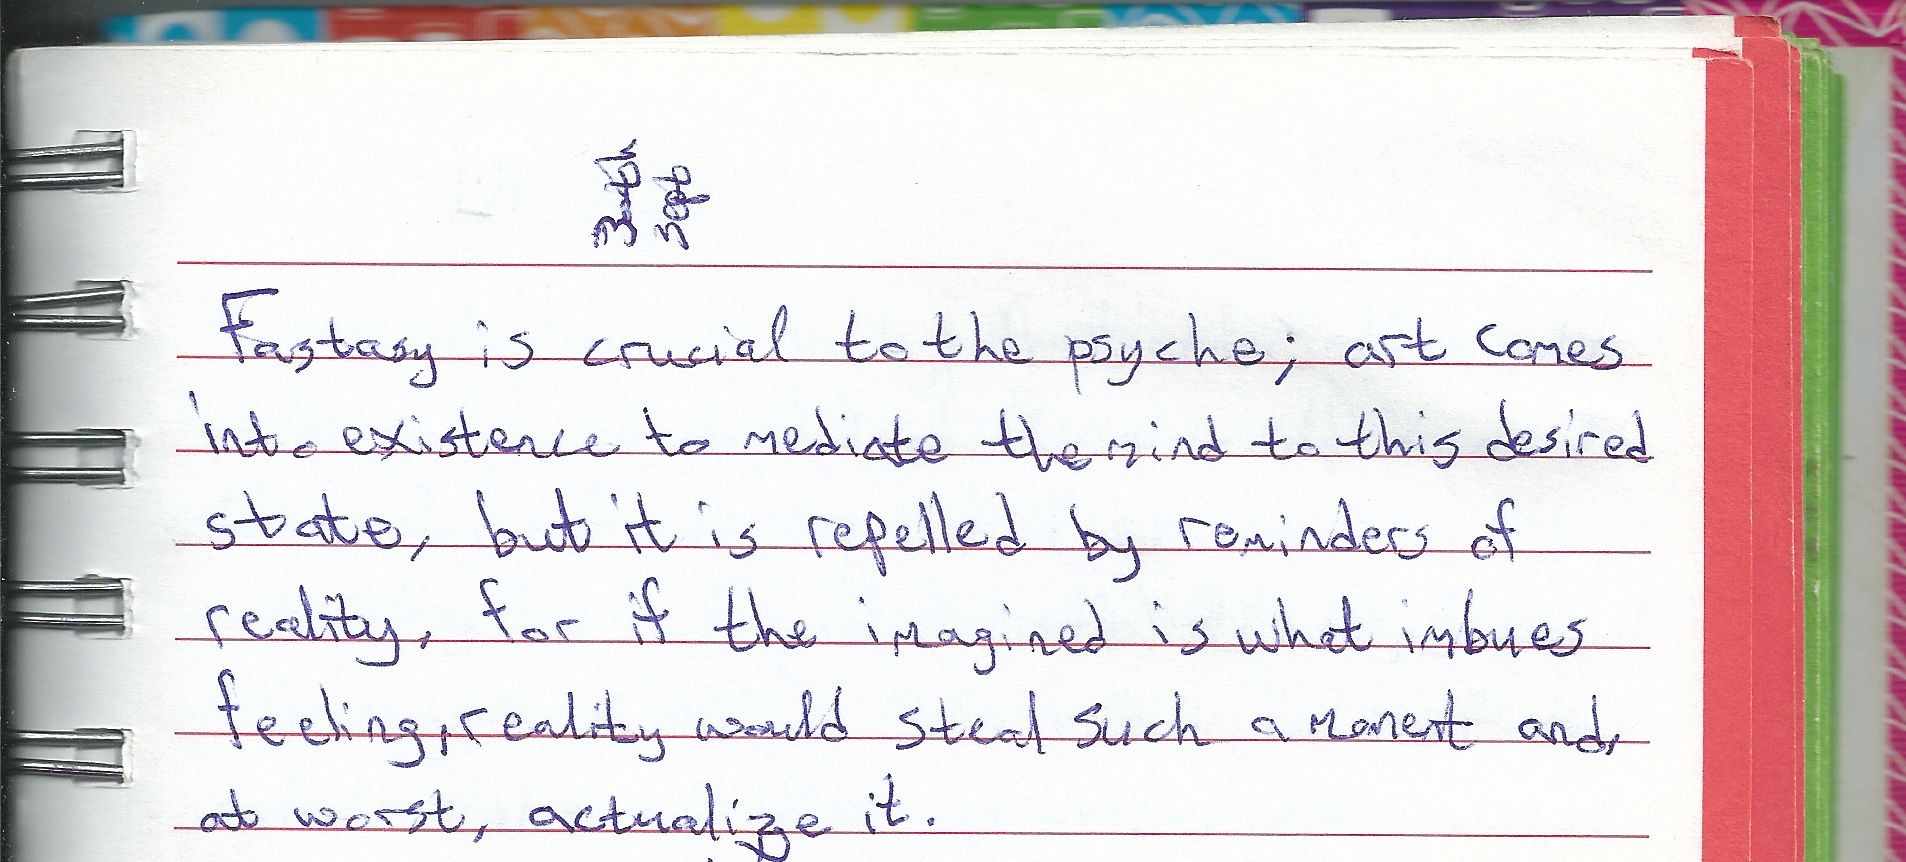 Fantasy is crucial to the psyche; art comes
into existence to mediate the mind to this desired
state, but it is repelled by reminders of
reality, for if the imagined is what imbues
feeling, reality would steal such a moment and,
at worst, actualize it.